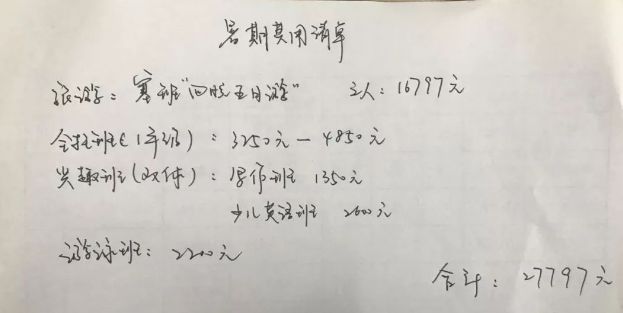 暑期费用清单
旅游：塞班“四晚五日游” 三人：16797元
全托班(1年级)：3250元－4850元
兴趣班(文体)：写作班 1350元
少儿英语班 2600元
游泳班：2200元
合计：27797元